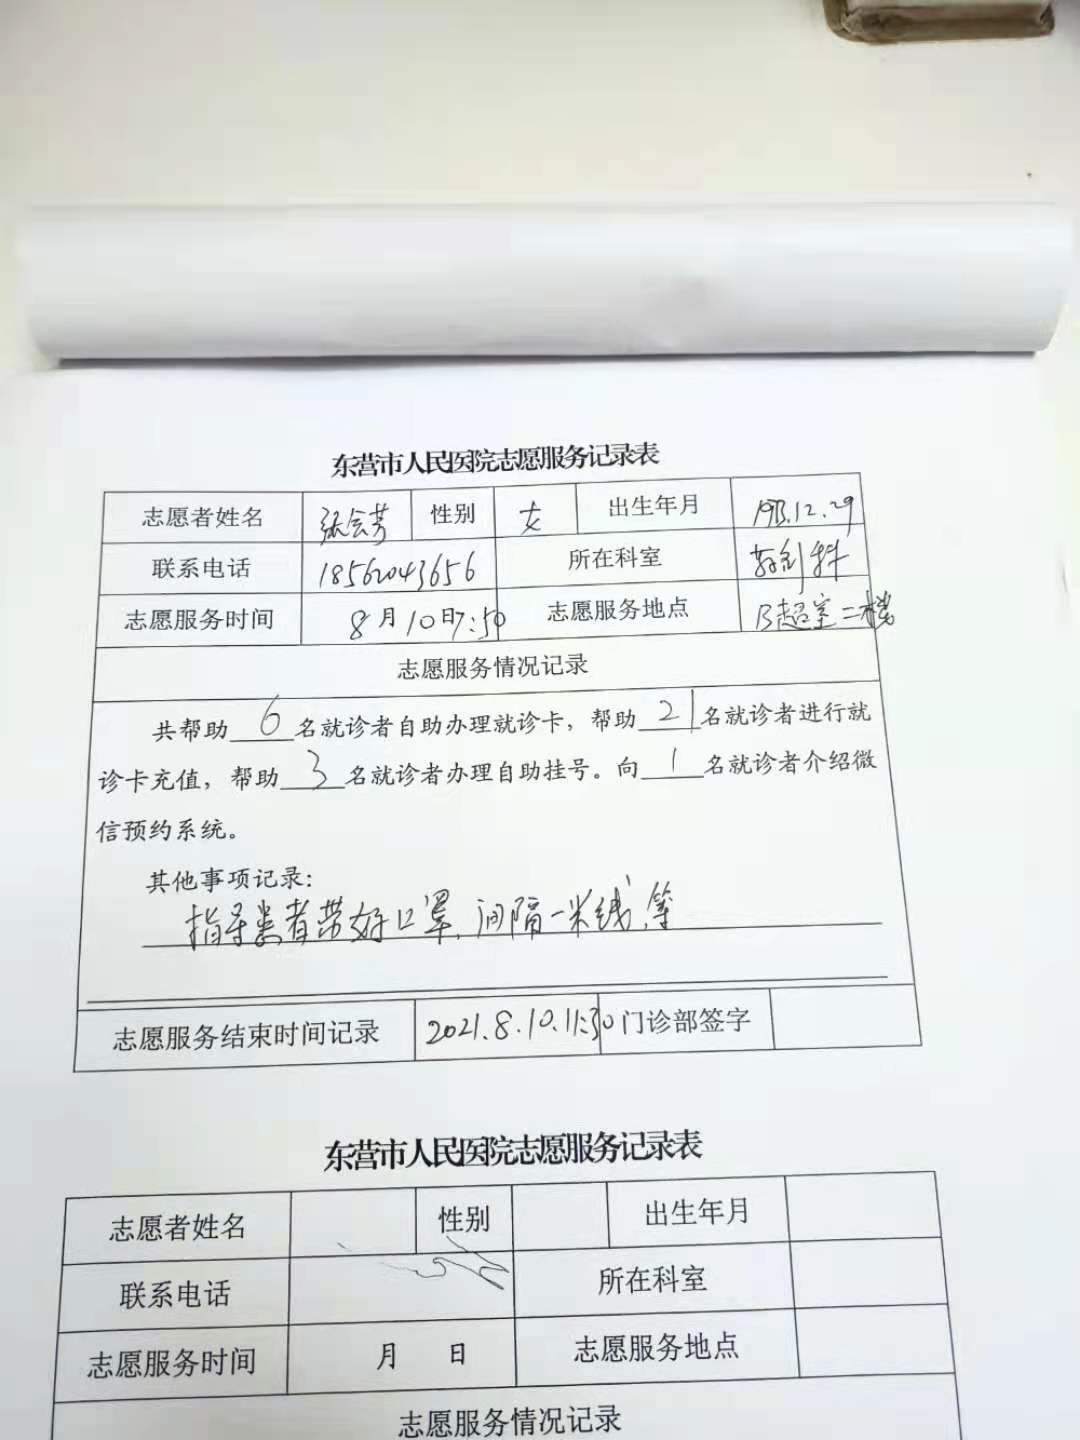 东营市人民医院志愿服务记录表
志愿者姓名 张会芳 性别 女 出生年月 1973.12.29
联系电话 18562043656 所在科室
志愿服务时间 8月10日7:50 志愿服务地点 B超室二楼
志愿服务情况记录
共帮助6名就诊者自助办理就诊卡，帮助21名就诊者进行就
诊卡充值，帮助3名就诊者办理自助挂号。向1名就诊者介绍微
信预约系统。
其他事项记录：
指导患者带好口罩、间隔一米线、等
志愿服务结束时间记录 2021.8.10.11:30 门诊部签字
东营市人民医院志愿服务记录表
志愿者姓名 性别 出生年月
联系电话 所在科室
志愿服务时间 月 日 志愿服务地点
志愿服务情况记录